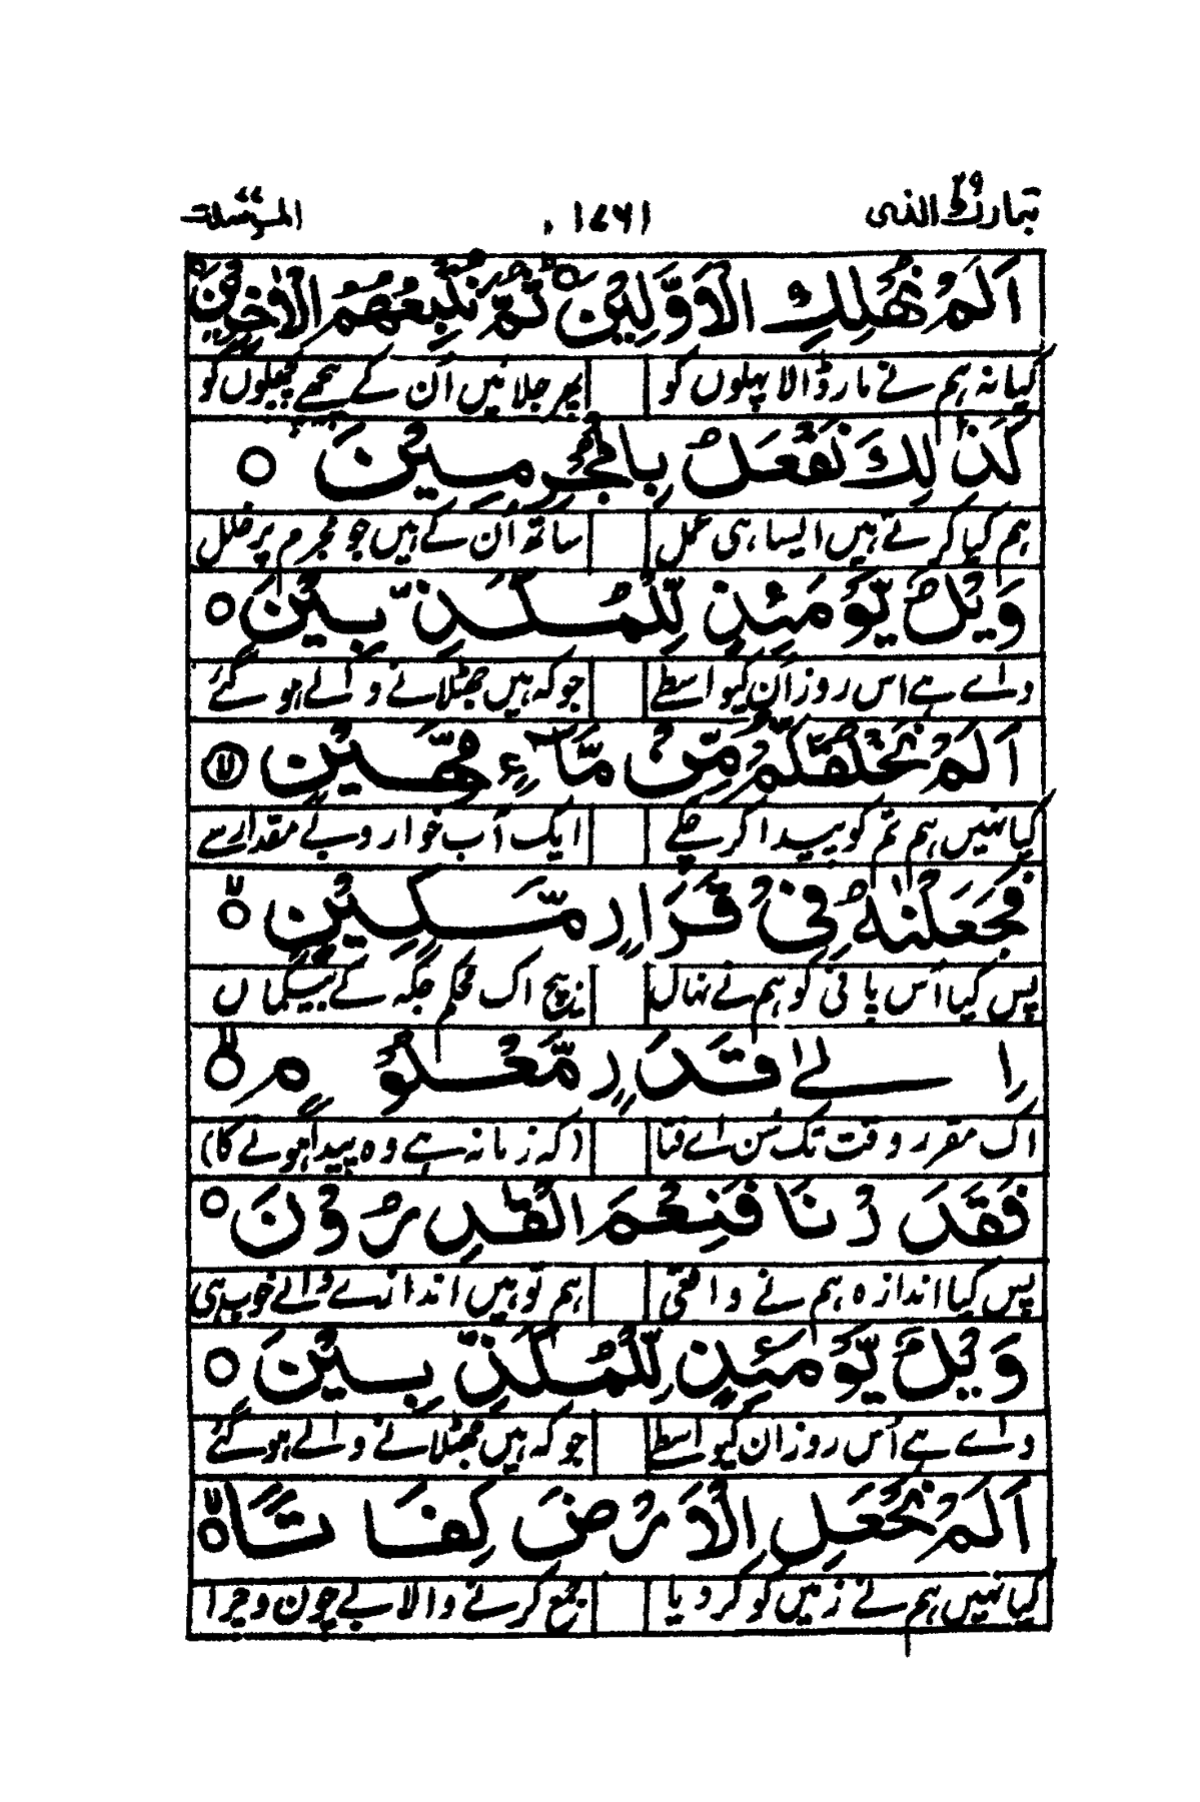 تبارك الذی ٢٩ ١٤٦١ المرسلت ٧٧
اَلَمْ نُهْلِكِ الْاَوَّلِيْنَ ○ ثُمَّ نُتْبِعُهُمُ الْاٰخِرِيْنَ
کیا نہ ہم نے مار ڈالا پہلوں کو پھر چلائیں اُن کے پیچھے پچھلوں کو
كَذٰلِكَ نَفْعَلُ بِالْمُجْرِمِيْنَ ○
ہم کیا کرتے ہیں ایسا ہی عمل ساتھ اُن کے ہیں جو مجرم پر
وَيْلٌ يَّوْمَئِذٍ لِّلْمُكَذِّبِيْنَ ○
واے ہے اس روز اُن کیواسطے جو کہ ہیں جھٹلانے والے ہو گئے
اَلَمْ نَخْلُقْكُّمْ مِّنْ مَّآءٍ مَّهِيْنٍ
کیا نہیں ہم تم کو پیدا کر چکے ایک آب خوار و بے مقدار سے
فَجَعَلْنٰهُ فِیْ قَرَارٍ مَّكِيْنٍ ○
پس کیا اُس پانی کو ہم نے نہاں بیچ اک محکم جگہ کے بیگماں
اِلٰی قَدَرٍ مَّعْلُوْمٍ ○
اک مقرر وقت تک سُن اے فتا (کہ زمانہ ہے وہ پیدا ہونے کا)
فَقَدَرْنَا فَنِعْمَ الْقٰدِرُوْنَ ○
پس کیا اندازہ ہم نے واقعی ہم تو ہیں اندازے والے خوب ہی
وَيْلٌ يَّوْمَئِذٍ لِّلْمُكَذِّبِيْنَ ○
واے ہے اُس روز ان کیواسطے جو کہ ہیں جھٹلانے والے ہو گئے
اَلَمْ نَجْعَلِ الْاَرْضَ كِفَاتًا ○
کیا نہیں ہم نے زمیں کو کر دیا جمع کرنے والا بے چون و چرا